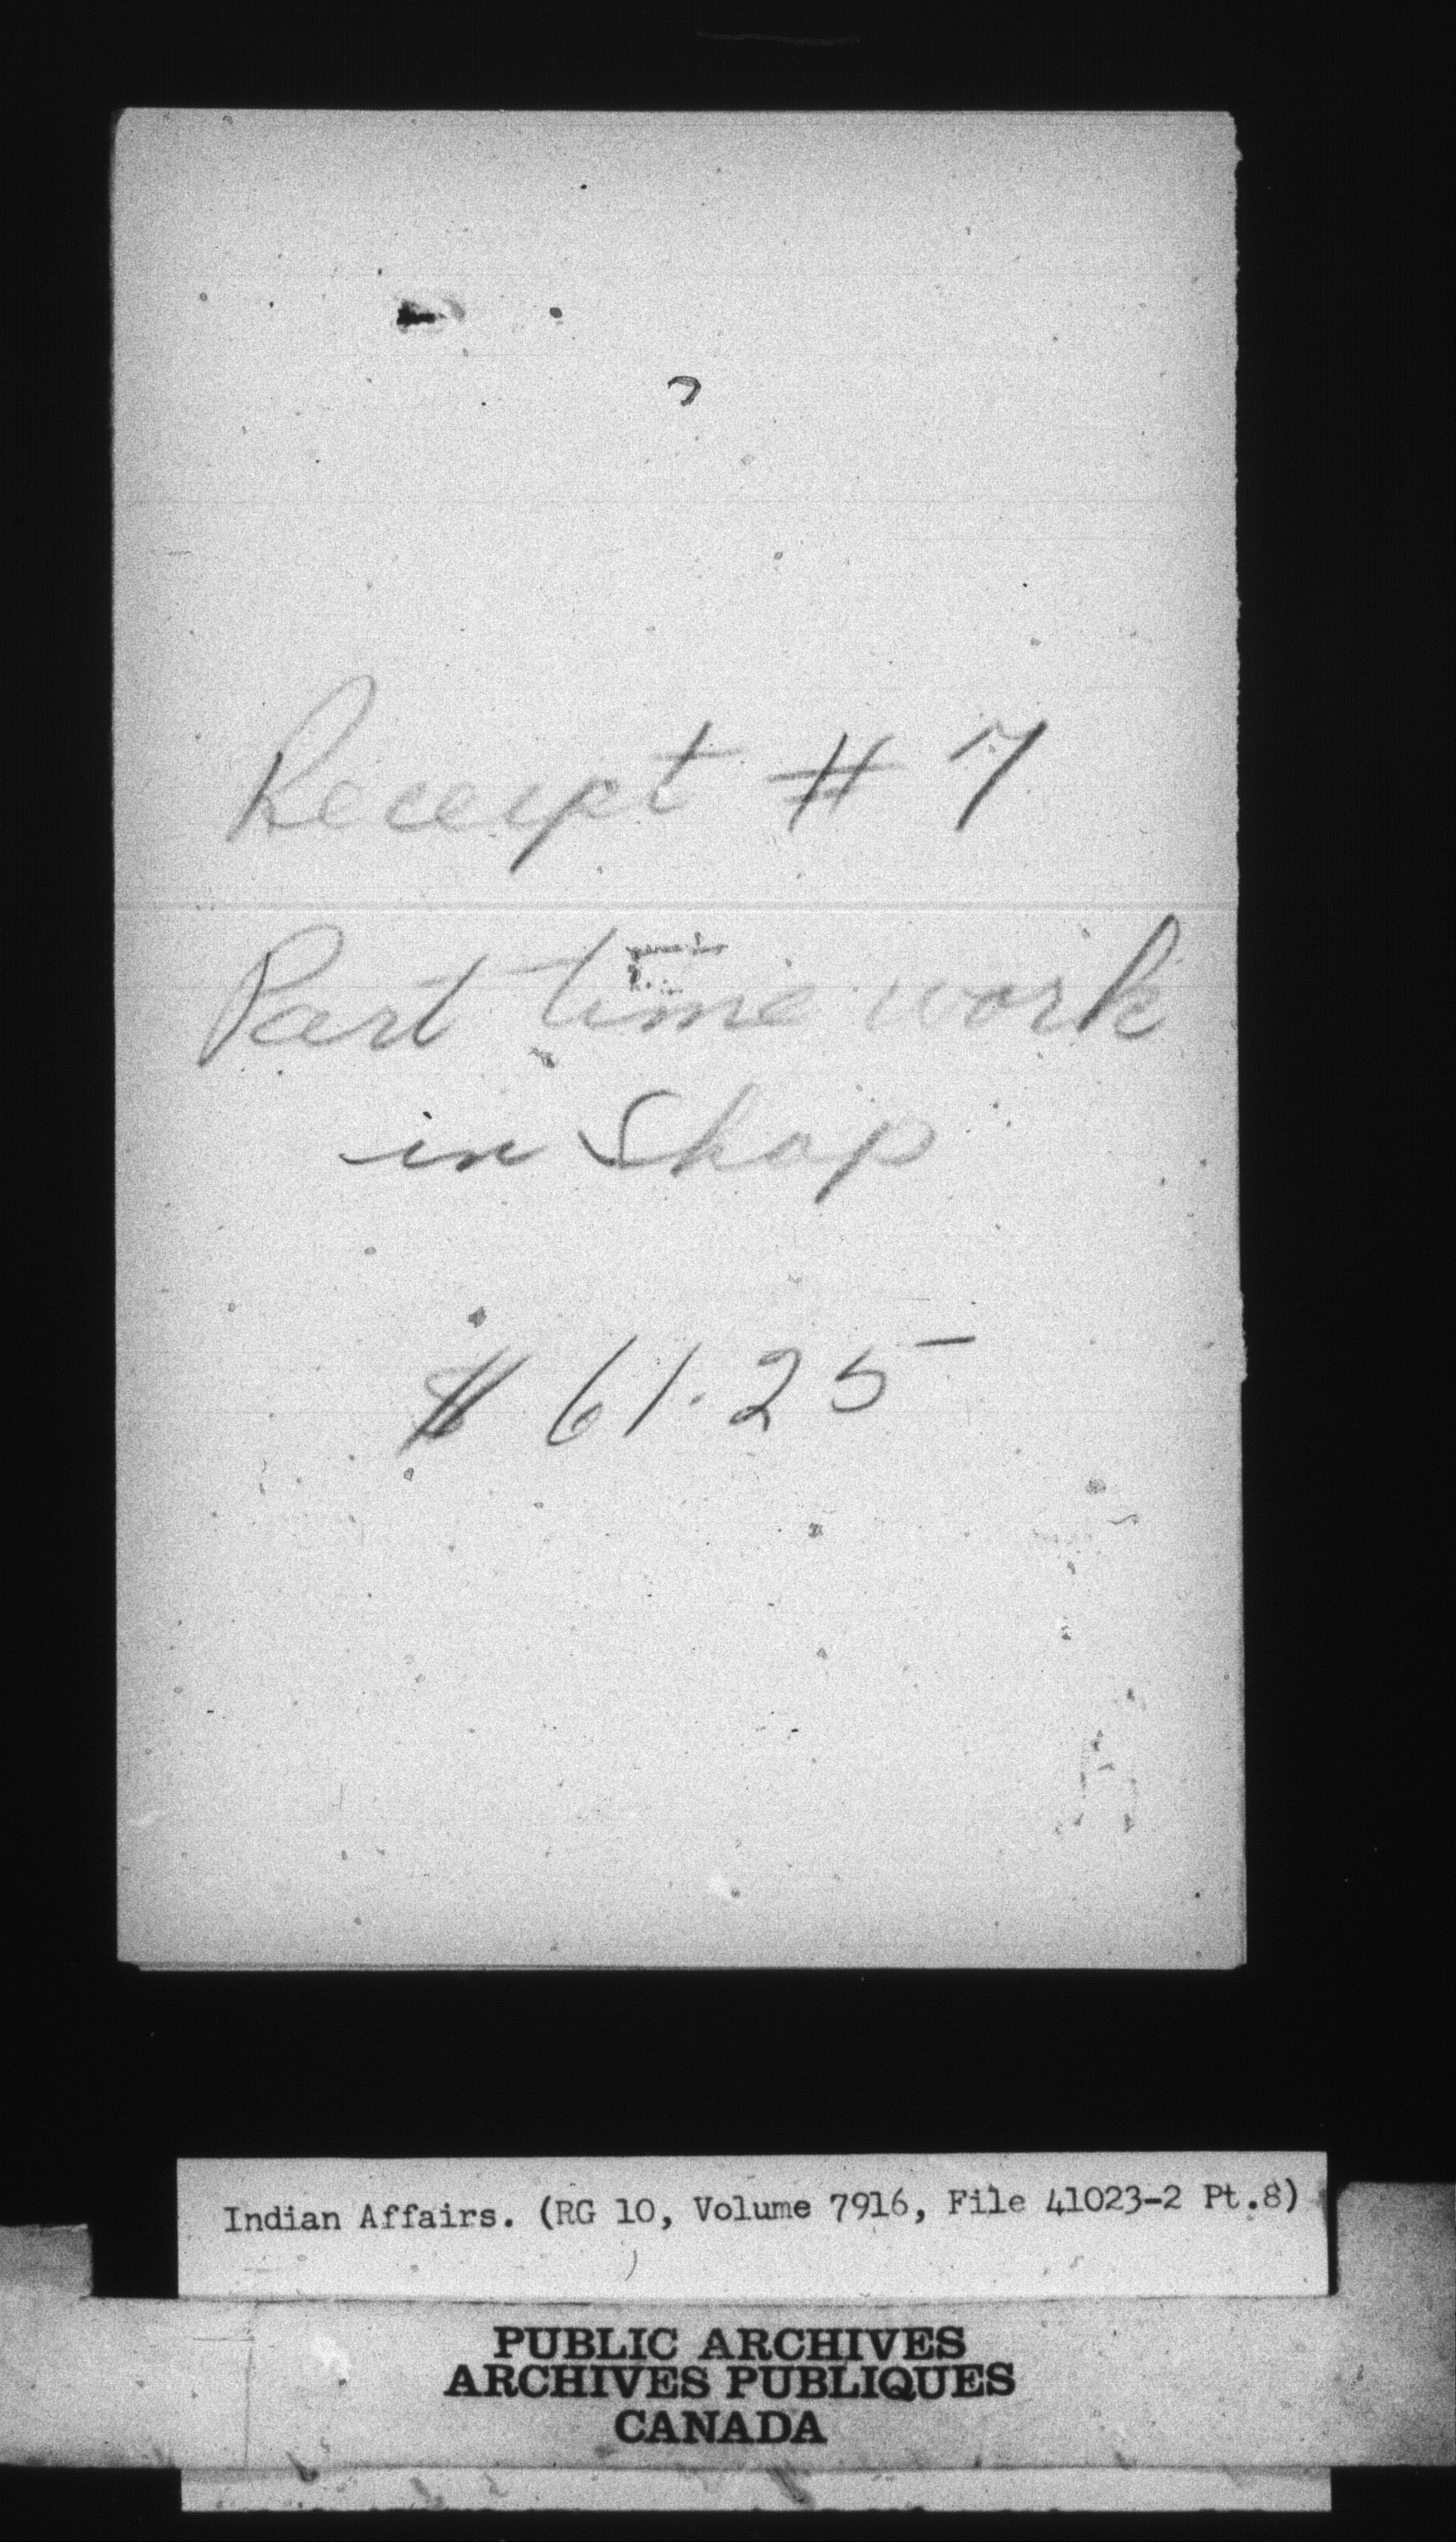 Receipt # 7
Part time work
in Shop
$ 61.25
Indian Affairs. (RG 10, Volume 7916, File 41023-2 Pt.8)
PUBLIC ARCHIVES
ARCHIVES PUBLIQUES
CANADA